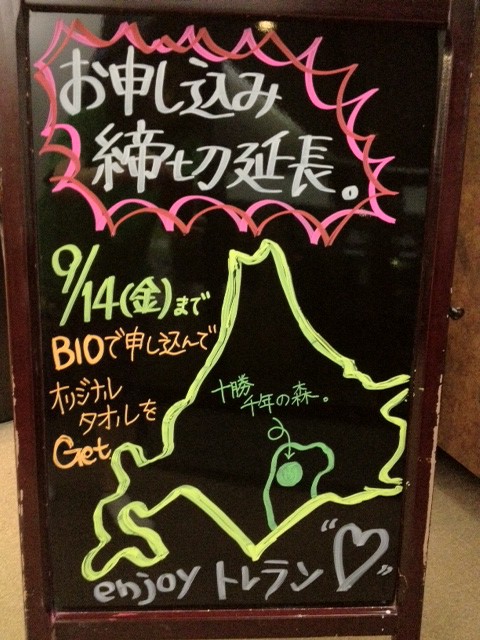 お申し込み
締切延長。
9/14(金)まで
BIOで申し込んで
オリジナル
タオルを
Get
十勝
千年の森。
enjoy トレラン "♡"